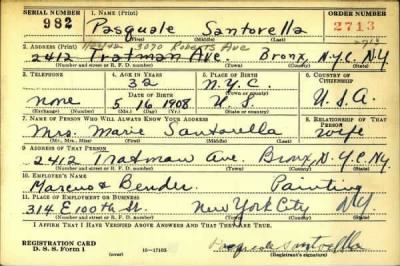 SERIAL NUMBER 1. NAME (Print) ORDER NUMBER
982 Pasquale Santorella 2713
(First) (Middle) (Last)
2. ADDRESS (Print) 3070 Roberts Ave
2412 Tratman Ave. Bronx, N.Y.C. N.Y.
(Number and street or R. F. D. number) (Town) (County) (State)
3. TELEPHONE 4. AGE IN YEARS 5. PLACE OF BIRTH 6. COUNTRY OF CITIZENSHIP
32 N.Y.C.
none DATE OF BIRTH (Town or county)
5 16 1908 U.S. U.S.A.
(Exchange) (Number) (Mo.) (Day) (Yr.) (State or country)
7. NAME OF PERSON WHO WILL ALWAYS KNOW YOUR ADDRESS 8. RELATIONSHIP OF THAT PERSON
Mrs. Marie Santorella wife
(Mr., Mrs., Miss) (First) (Middle) (Last)
9. ADDRESS OF THAT PERSON
2412 Tratman Ave. Bronx, N.Y.C. N.Y.
(Number and street or R. F. D. number) (Town) (County) (State)
10. EMPLOYER'S NAME
Marcus & Bender. Painting
11. PLACE OF EMPLOYMENT OR BUSINESS
314 E 100th St. New York City N.Y.
(Number and street or R. F. D. number) (Town) (County) (State)
I AFFIRM THAT I HAVE VERIFIED ABOVE ANSWERS AND THAT THEY ARE TRUE.
REGISTRATION CARD
D. S. S. Form 1 16—17105 Pasquale Santorella
(Registrant's signature)